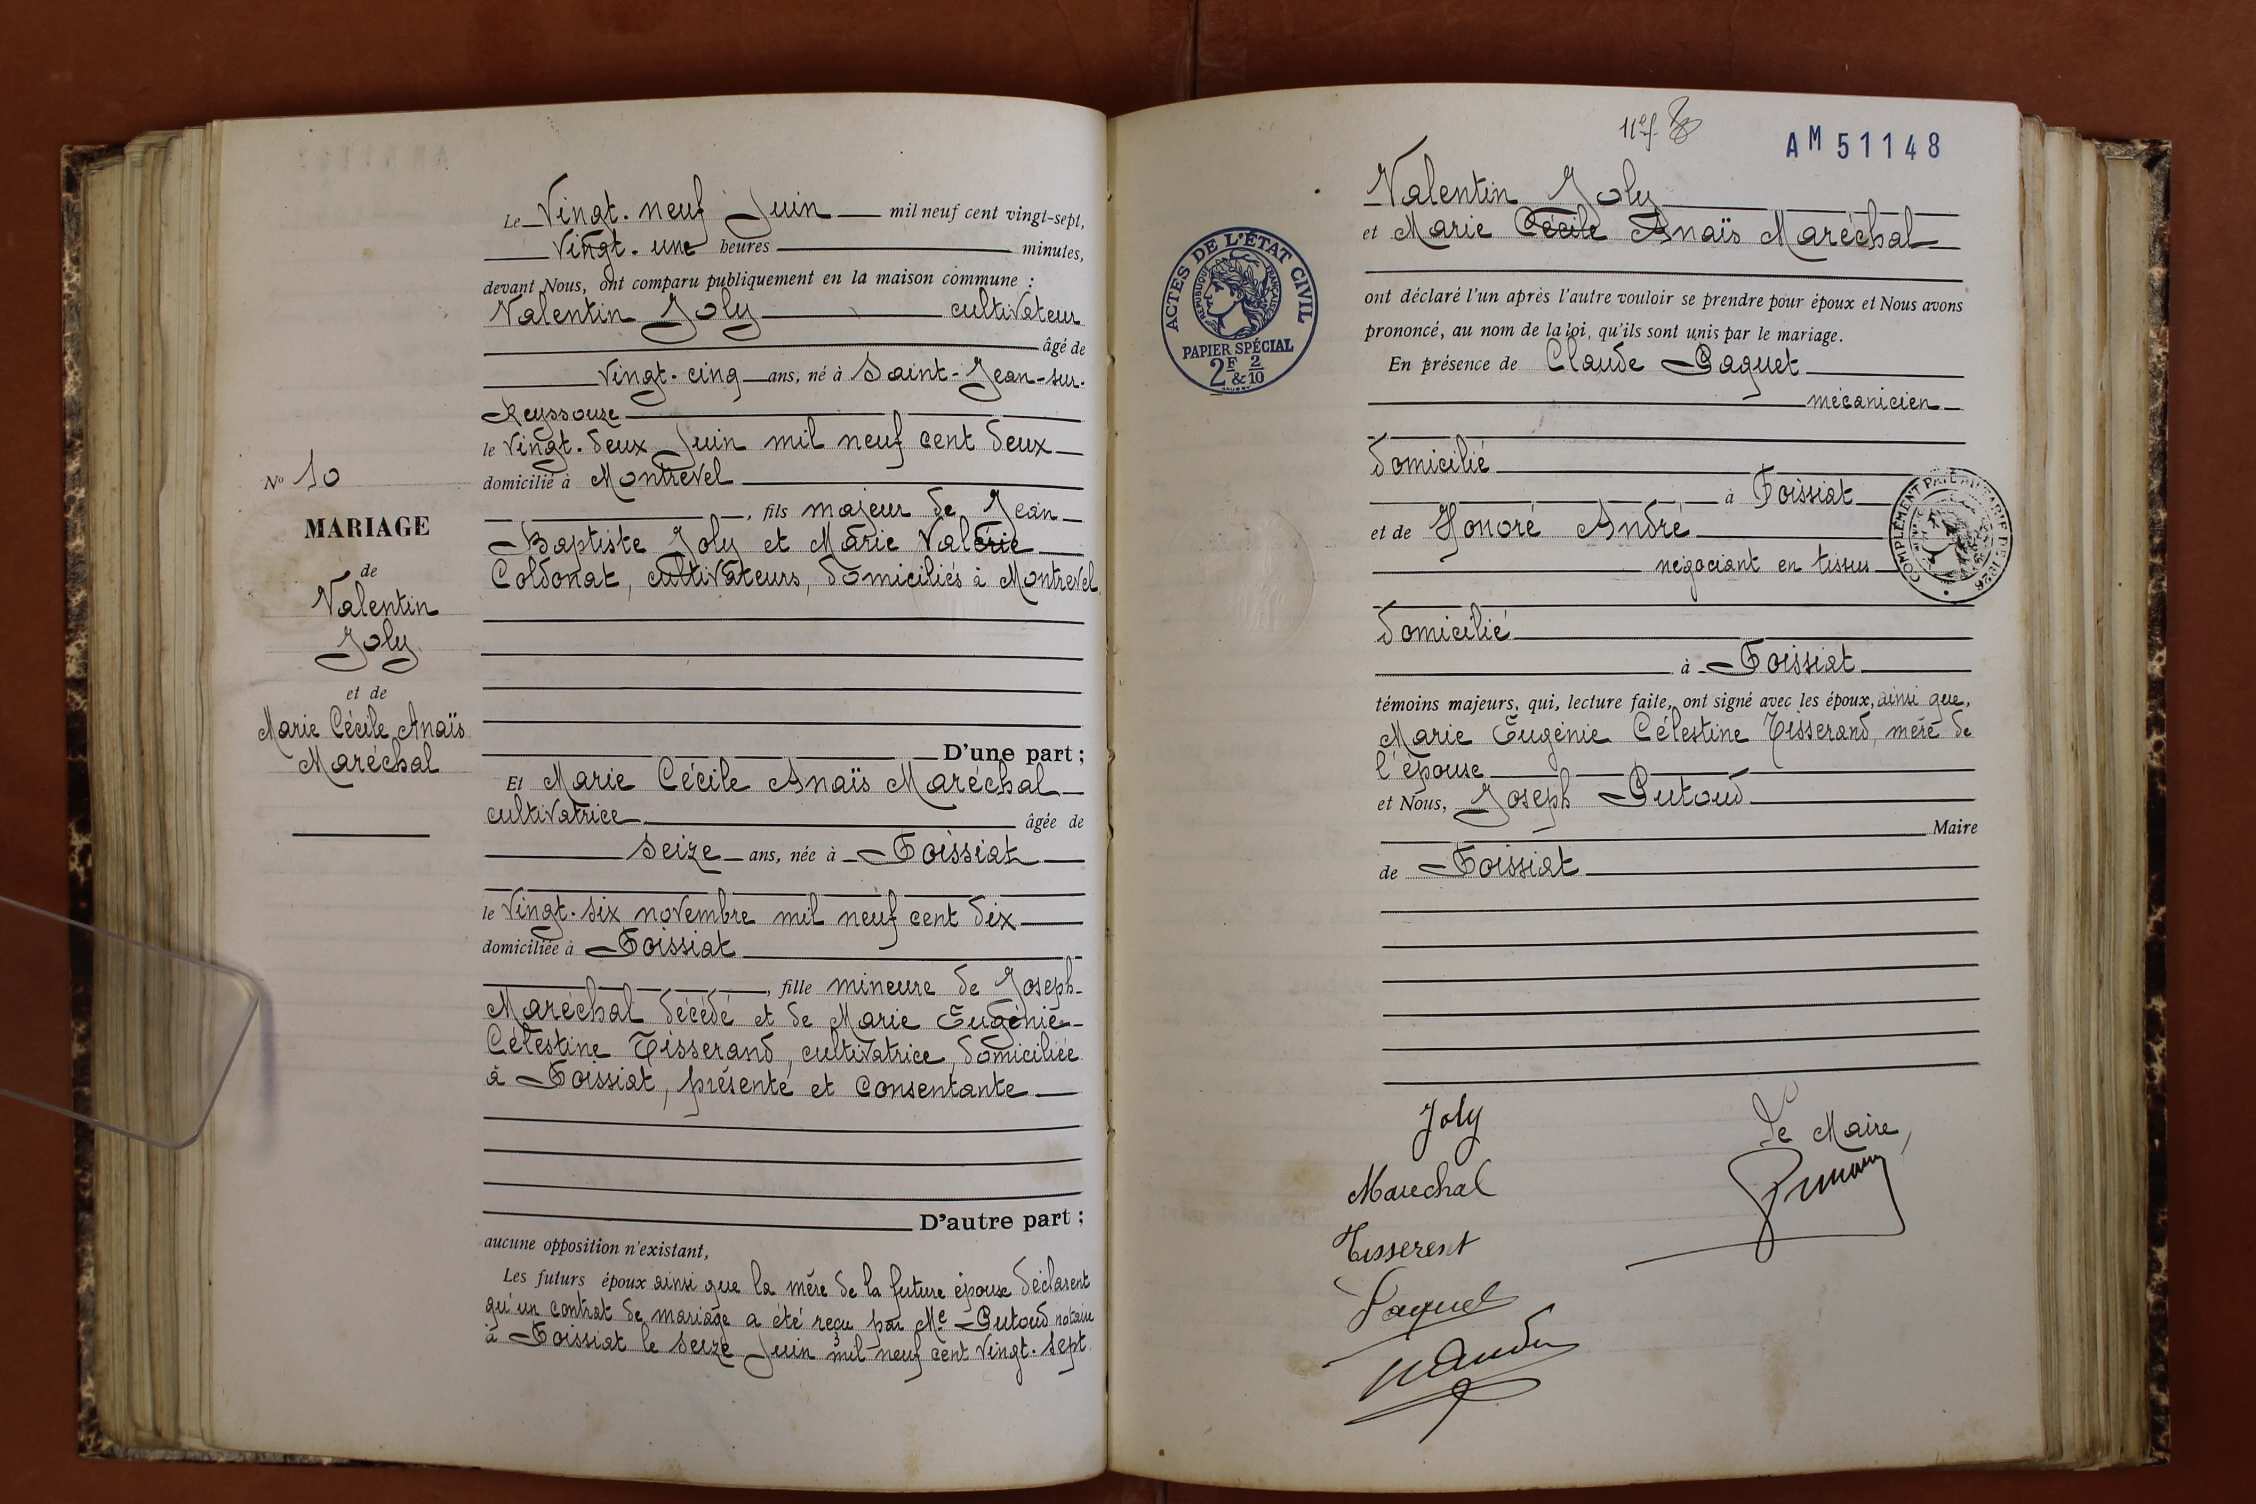 Le Vingt-neuf Juin mil neuf cent vingt-sept,
Vingt-une heures minutes,
devant Nous, ont comparu publiquement en la maison commune :
Valentin Joly cultivateur
âgé de
vingt-cinq ans, né à Saint-Jean-sur-
Reyssouze
le vingt-deux Juin mil neuf cent deux
domicilié à Montrevel
, fils majeur de Jean
Baptiste Joly et Marie Valérie
Coldonat, cultivateurs, domiciliés à Montrevel
D'une part ;
Et Marie Cécile Anaïs Maréchal
cultivatrice âgée de
seize ans, née à Foissiat
le vingt-six novembre mil neuf cent dix
domiciliée à Foissiat
, fille mineure de Joseph
Maréchal décédé et de Marie Eugénie
Célestine Tisserand, cultivatrice, domiciliée
à Foissiat, présente et consentante
D'autre part ;
aucune opposition n'existant,
Les futurs époux ainsi que la mère de la future épouse déclarent
qu'un contrat de mariage a été reçu par Me Putoud notaire
à Foissiat le seize Juin mil neuf cent vingt-sept.
No 10
MARIAGE
de
Valentin
Joly
et de
Marie Cécile Anaïs
Maréchal
AM 51148
Valentin Joly
et Marie Cécile Anaïs Maréchal
ont déclaré l'un après l'autre vouloir se prendre pour époux et Nous avons
prononcé, au nom de la loi, qu'ils sont unis par le mariage.
En présence de Claude Paquet
mécanicien
domicilié
à Foissiat
et de Honoré André
négociant en tissus
domicilié
à Foissiat
témoins majeurs, qui, lecture faite, ont signé avec les époux, ainsi que,
Marie Eugénie Célestine Tisserand, mère de
l'épouse
et Nous, Joseph Putoud
Maire
de Foissiat
ACTES DE L'ÉTAT CIVIL
RÉPUBLIQUE FRANÇAISE
PAPIER SPÉCIAL
2F & 2/10
COMPLÉMENT PAYÉ AU TARIF DE 1926
Joly
Marechal
Tisserent
Paquet
Le Maire,